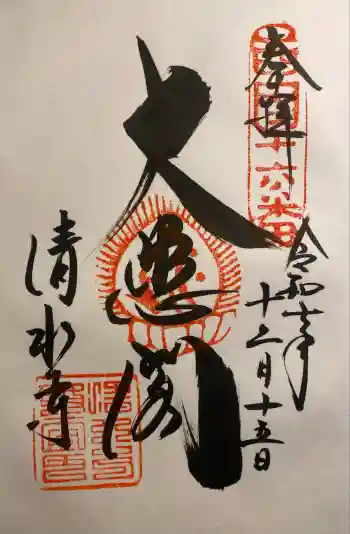 奉拝
西国十六番
令和七年
十二月十五日
大悲閣
清水寺